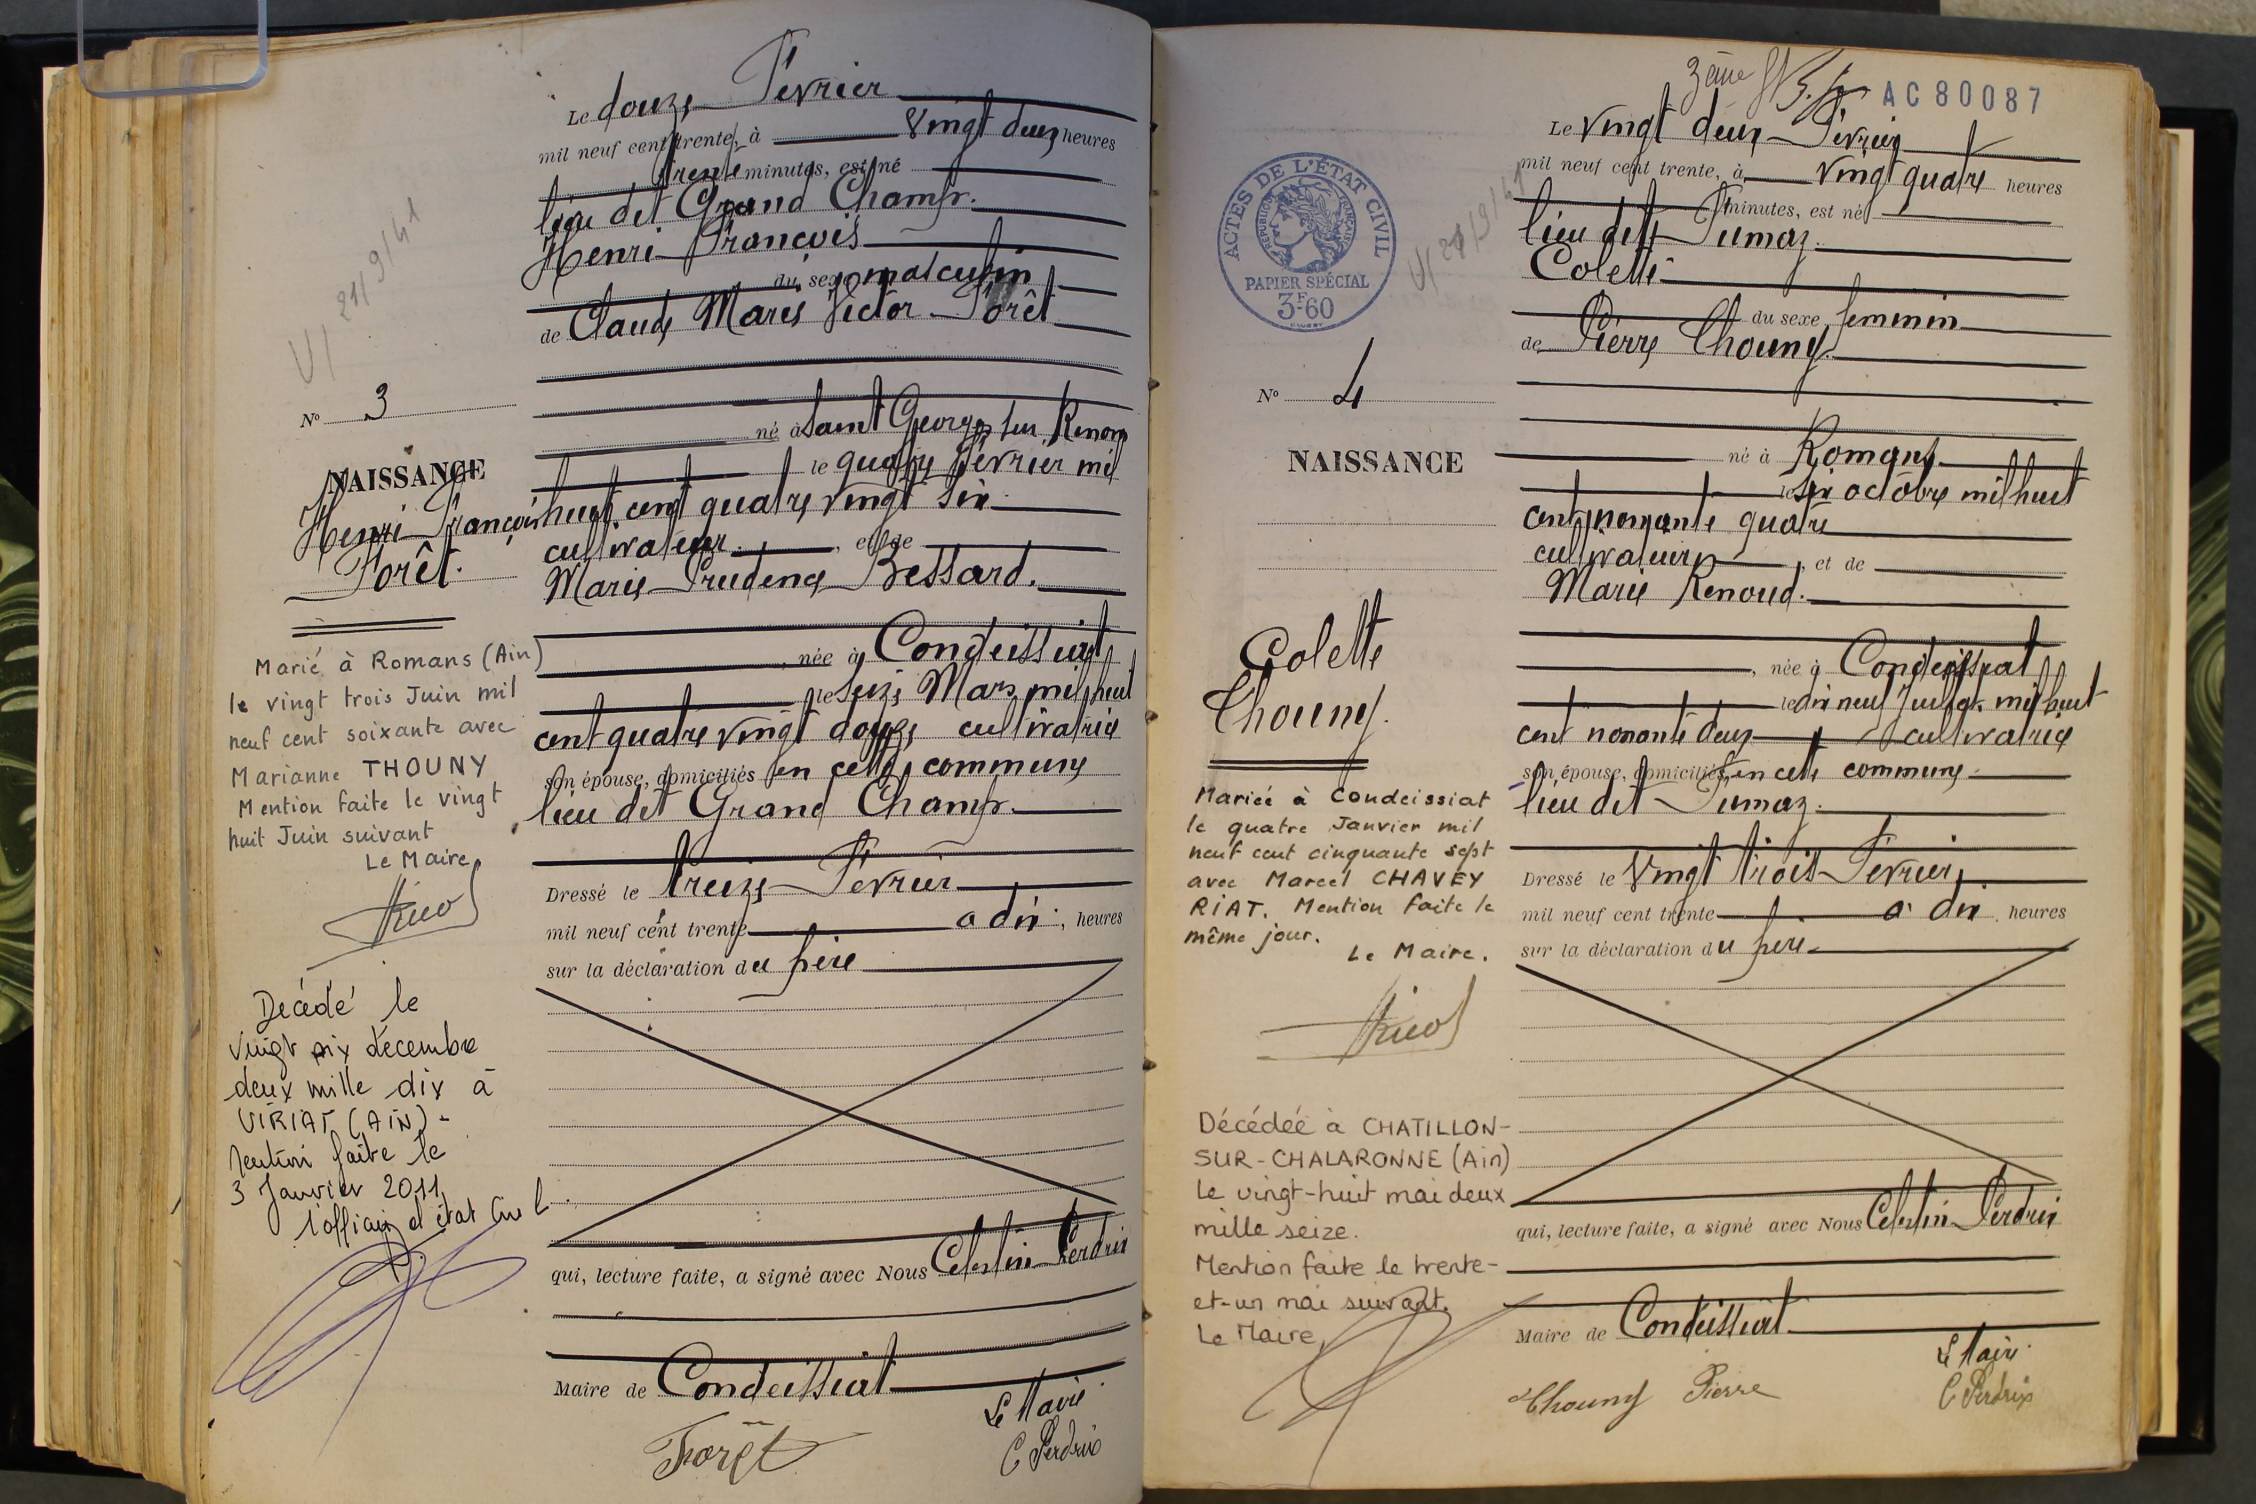 Le douze Février
mil neuf cent trente, à vingt deux heures
trente minutes, est né
lieu dit Grand Champ.
Henri François
du sexe masculin
de Claude Marie Victor Forêt
né à Saint Georges sur Renom
le quatre Février mil
huit cent quatre vingt six
cultivateur, et de
Marie Prudence Bessard.
, née à Condeissiat
le seize Mars mil huit
cent quatre vingt douze cultivatrice
son épouse, domiciliés en cette commune
lieu dit Grand Champ.
Dressé le treize Février
mil neuf cent trente à dix, heures
sur la déclaration du père
qui, lecture faite, a signé avec Nous Celestin Perdrix
Maire de Condeissiat
Le Maire
Forêt
C Perdrix
21/9/41
V/
N° 3
NAISSANCE
Henri François
Forêt.
Marié à Romans (Ain)
le vingt trois Juin mil
neuf cent soixante avec
Marianne THOUNY
Mention faite le vingt
huit Juin suivant
Le Maire
Décédé le
vingt six décembre
deux mille dix à
VIRIAT (AIN) -
Mention faite le
3 Janvier 2011
l'officier d'état Civil
3ème
AC80087
Le vingt deux Février
mil neuf cent trente, à vingt quatre heures
minutes, est né
lieu dit Fumaz.
Colette
du sexe féminin
de Pierre Thouny.
né à Romans
le six octobre mil huit
cent nonante quatre
cultivateur, et de
Marie Renoud.
, née à Condeissiat
le dix neuf Juillet mil huit
cent nonante deux cultivatrice
son épouse, domiciliés en cette commune
lieu dit Fumaz.
Dressé le vingt trois Février
mil neuf cent trente à dix heures
sur la déclaration du père
qui, lecture faite, a signé avec Nous Celestin Perdrix
Maire de Condeissiat
Le Maire.
Thouny Pierre
C Perdrix
ACTES DE L'ÉTAT CIVIL
RÉPUBLIQUE FRANÇAISE
PAPIER SPÉCIAL
3F60
V/ 21/9/41
N° 4
NAISSANCE
Colette
Thouny.
Mariée à Condeissiat
le quatre Janvier mil
neuf cent cinquante sept
avec Marcel CHAVEY
RIAT. Mention faite le
même jour.
Le Maire.
Décédée à CHATILLON-
SUR-CHALARONNE (Ain)
le vingt-huit mai deux
mille seize.
Mention faite le trente-
et-un mai suivant.
Le Maire,